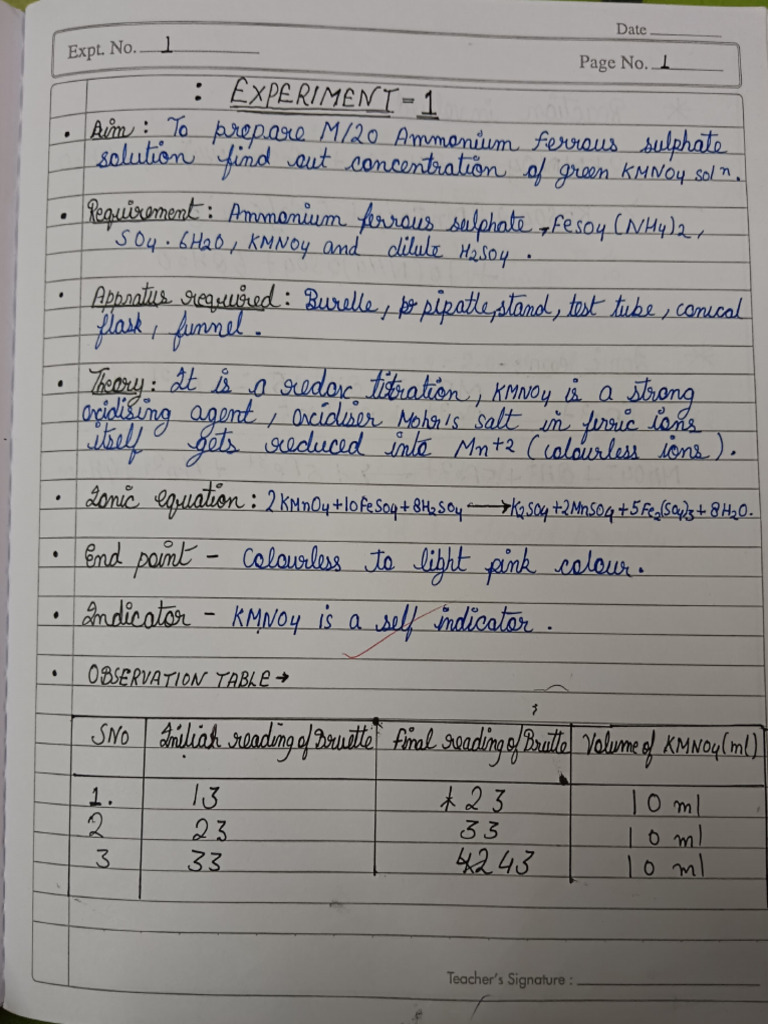 Date
Expt. No. 1
Page No. 1
: EXPERIMENT-1
• Aim : To prepare M/20 Ammonium ferrous sulphate
solution find out concentration of green KMNO4 solⁿ.
• Requirement : Ammonium ferrous sulphate, FeSO4 (NH4)2,
SO4 . 6H2O, KMNO4 and dilute H2SO4 .
• Appratus required : Burelle, pipatle, stand, test tube, conical
flask, funnel .
• Theory : It is a redox titration, KMNO4 is a strong
oxidising agent, oxidiser Mohr's salt in ferric ions
itself gets reduced into Mn+2 (colourless ions).
• Ionic equation : 2KMnO4+10FeSO4+8H2SO4 ⟶ K2SO4+2MnSO4+5Fe2(SO4)3+8H2O.
• End point - Colourless to light pink colour .
• Indicator - KMNO4 is a self indicator .
• OBSERVATION TABLE →
SNO Initial reading of Bruette final reading of Brutte Volume of KMNO4 (ml)
1. 13 23 10 ml
2 23 33 10 ml
3 33 43 10 ml
Teacher's Signature :